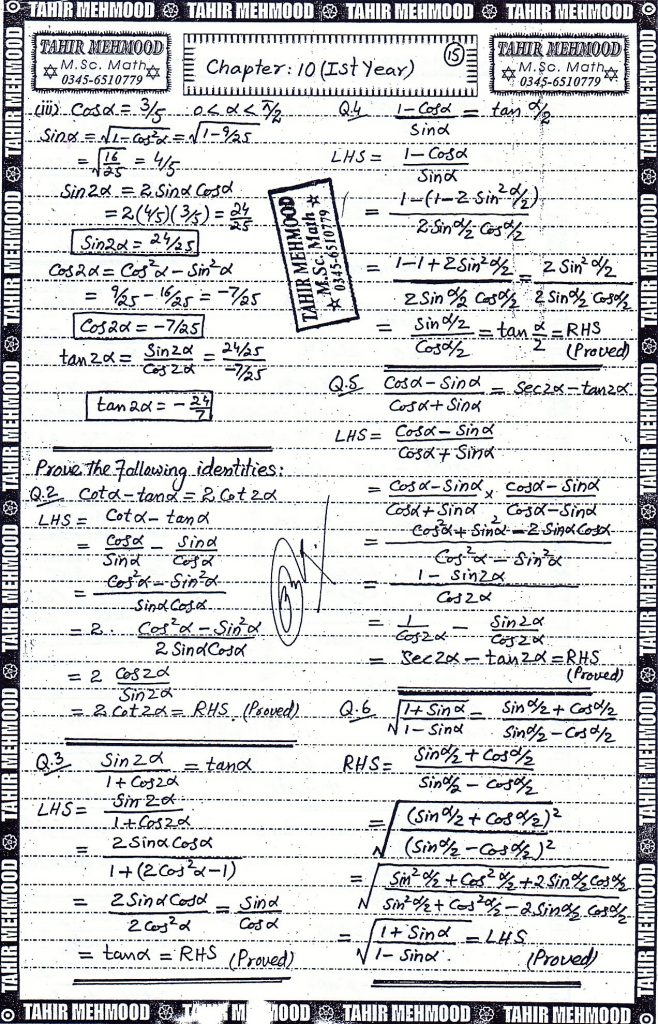 TAHIR MEHMOOD TAHIR MEHMOOD TAHIR MEHMOOD TAHIR MEHMOOD
TAHIR MEHMOOD
M.Sc. Math
0345-6510779
Chapter: 10 (Ist Year)
15
TAHIR MEHMOOD
M.Sc. Math
0345-6510779
(iii) Cosα = 3/5 0 < α < π/2
Sinα = √(1-cos²α) = √(1-9/25)
= √(16/25) = 4/5
Sin2α = 2 Sinα Cosα
= 2(4/5)(3/5) = 24/25
Sin2α = 24/25
Cos2α = Cos²α - Sin²α
= 9/25 - 16/25 = -7/25
Cos2α = -7/25
tan2α = Sin2α/Cos2α = (24/25)/(-7/25)
tan2α = -24/7
Prove the following identities:
Q.2 Cotα - tanα = 2 Cot 2α
LHS = Cotα - tanα
= Cosα/Sinα - Sinα/Cosα
= (Cos²α - Sin²α)/(Sinα Cosα)
= 2 · (Cos²α - Sin²α)/(2 Sinα Cosα)
= 2 Cos2α/Sin2α
= 2 Cot2α = RHS (Proved)
Q.3 Sin2α/(1 + Cos2α) = tanα
LHS = Sin2α/(1 + Cos2α)
= 2 Sinα Cosα/(1 + (2Cos²α - 1))
= 2 Sinα Cosα/(2 Cos²α) = Sinα/Cosα
= tanα = RHS (Proved)
Q.4 (1 - Cosα)/Sinα = tan α/2
LHS = (1 - Cosα)/Sinα
= (1 - (1 - 2 Sin² α/2))/(2 Sin α/2 Cos α/2)
= (1 - 1 + 2 Sin² α/2)/(2 Sin α/2 Cos α/2) = 2 Sin² α/2/(2 Sin α/2 Cos α/2)
= Sin α/2/Cos α/2 = tan α/2 = RHS
(Proved)
Q.5 (Cosα - Sinα)/(Cosα + Sinα) = Sec2α - tan2α
LHS = (Cosα - Sinα)/(Cosα + Sinα)
= (Cosα - Sinα)/(Cosα + Sinα) × (Cosα - Sinα)/(Cosα - Sinα)
= (Cos²α + Sin²α - 2 Sinα Cosα)/(Cos²α - Sin²α)
= (1 - Sin2α)/Cos2α
= 1/Cos2α - Sin2α/Cos2α
= Sec2α - tan2α = RHS
(Proved)
Q.6 √((1 + Sinα)/(1 - Sinα)) = (Sin α/2 + Cos α/2)/(Sin α/2 - Cos α/2)
RHS = (Sin α/2 + Cos α/2)/(Sin α/2 - Cos α/2)
= √((Sin α/2 + Cos α/2)²/(Sin α/2 - Cos α/2)²)
= √((Sin² α/2 + Cos² α/2 + 2 Sin α/2 Cos α/2)/(Sin² α/2 + Cos² α/2 - 2 Sin α/2 Cos α/2))
= √((1 + Sinα)/(1 - Sinα)) = LHS
(Proved)
TAHIR MEHMOOD
M.Sc. Math
0345-6510779
TAHIR MEHMOOD TAHIR MEHMOOD TAHIR MEHMOOD